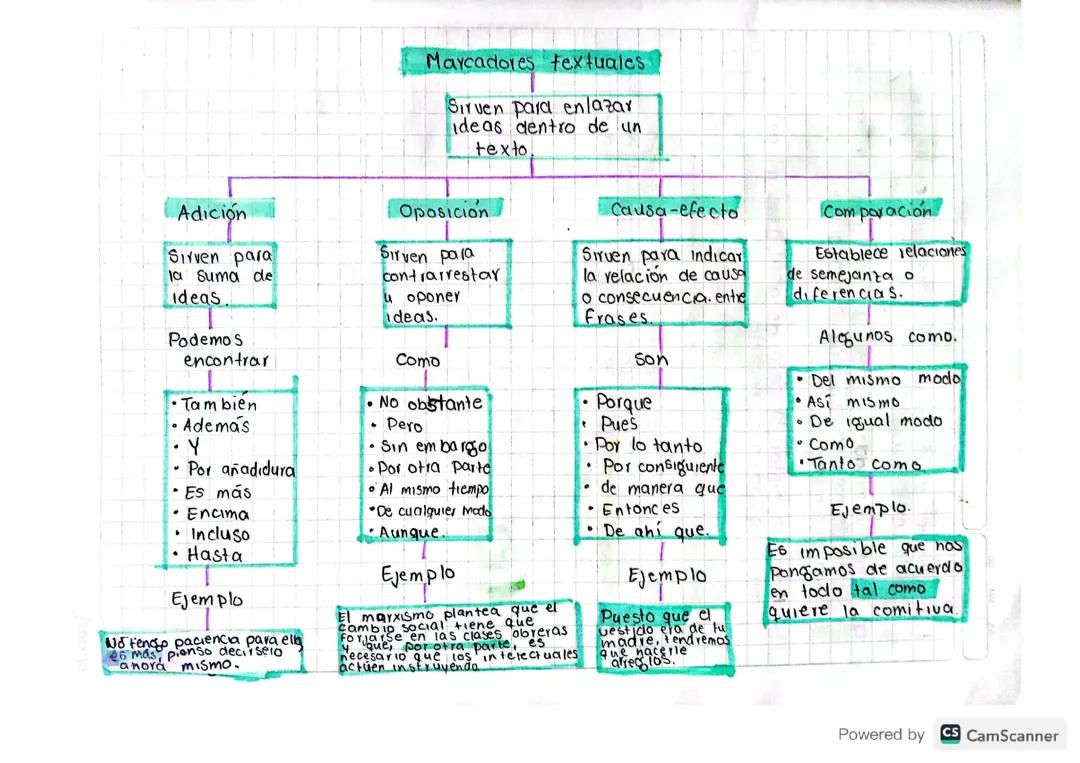 Marcadores textuales
Sirven para enlazar
ideas dentro de un
texto.
Adición
Sirven para
la suma de
ideas.
Podemos
encontrar
• También
• Además
• Y
• Por añadidura
• Es más
• Encima
• Incluso
• Hasta
Ejemplo
No tengo paciencia para ello
es más, pienso decirselo
ahora mismo.
Oposición
Sirven para
contrarrestar
u oponer
ideas.
Como
• No obstante
• Pero
• Sin embargo
• Por otra parte
• Al mismo tiempo
• De cualquier modo
• Aunque.
Ejemplo
El marxismo plantea que el
cambio social tiene que
forjarse en las clases obreras
y que, por otra parte, es
necesario que los intelectuales
actúen instruyendo
Causa-efecto
Sirven para indicar
la relación de causa
o consecuencia. entre
frases.
son
• Porque
• Pues
• Por lo tanto
• Por consiguiente
• de manera que
• Entonces
• De ahí que.
Ejemplo
Puesto que el
vestido era de tu
madre, tendremos
que hacerle
arreglos.
Comparación
Establece relaciones
de semejanza o
diferencias.
Algunos como.
• Del mismo modo
• Así mismo
• De igual modo
• Como
• Tanto como
Ejemplo.
Es imposible que nos
pongamos de acuerdo
en todo tal como
quiere la comitiva.
Powered by CS CamScanner